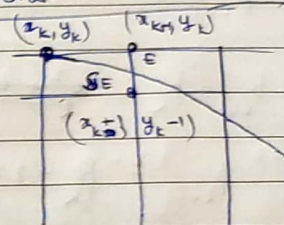 (x_k, y_k) (x_{k+1}, y_k)
E
SE
(x_{k+1}, y_k-1)